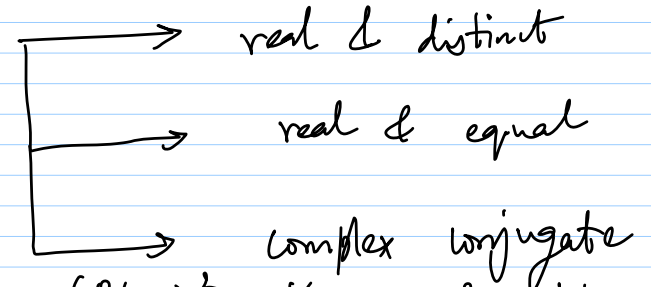 real & distinct
real & equal
complex conjugate